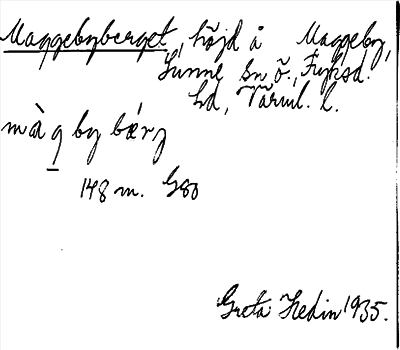 Maggebyberget, höjd å Maggeby,
Sunne sn ö., Fryksd.
hd, Värml. l.
màg by bærj
148 m. G80
Greta Hedin 1935.